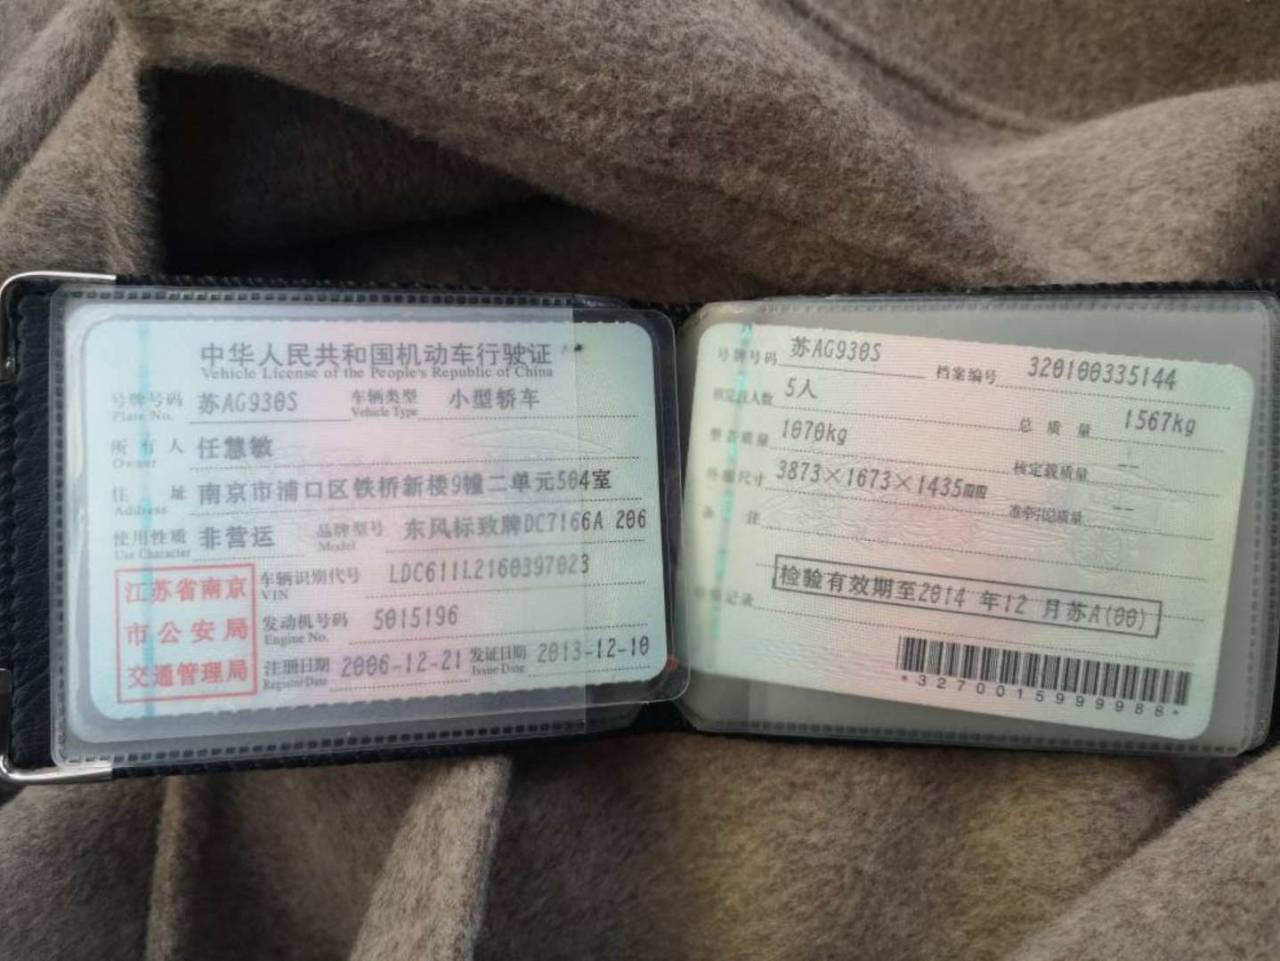 中华人民共和国机动车行驶证
Vehicle License of the People's Republic of China
号牌号码 苏AG930S 车辆类型 小型轿车
Plate No. Vehicle Type
所有人 任慧敏
Owner
住址 南京市浦口区铁桥新楼9幢二单元504室
Address
使用性质 非营运 品牌型号 东风标致牌DC7166A 206
Use Character Model
江苏省南京
市公安局
交通管理局
车辆识别代号 LDC611L2160397023
VIN
发动机号码 5015196
Engine No.
注册日期 2006-12-21 发证日期 2013-12-10
Register Date Issue Date
号牌号码 苏AG930S 档案编号 320100335144
核定载人数 5人 总质量 1567kg
整备质量 1070kg 核定载质量 --
外廓尺寸 3873×1673×1435mm 准牵引总质量 --
备注
检验记录 检验有效期至2014 年12 月苏A(00)
*3270015999986*